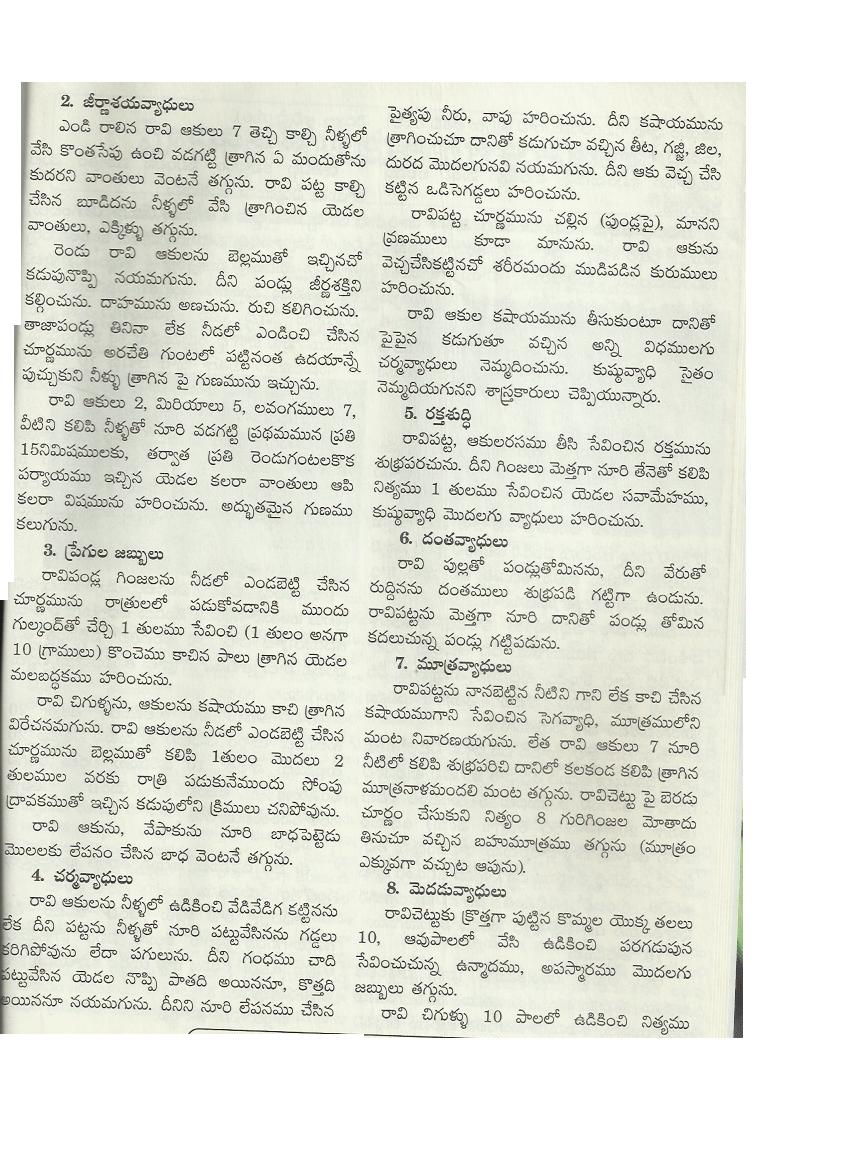 2. జీర్ణాశయవ్యాధులు
ఎండి రాలిన రావి ఆకులు 7 తెచ్చి కాల్చి నీళ్ళలో
వేసి కొంతసేపు ఉంచి వడగట్టి త్రాగిన ఏ మందుతోను
కుదరని వాంతులు వెంటనే తగ్గును. రావి పట్ట కాల్చి
చేసిన బూడిదను నీళ్ళలో వేసి త్రాగించిన యెడల
వాంతులు, ఎక్కిళ్ళు తగ్గును.
రెండు రావి ఆకులను బెల్లముతో ఇచ్చినచో
కడుపునొప్పి నయమగును. దీని పండ్లు జీర్ణశక్తిని
కల్గించును. దాహమును అణచును. రుచి కలిగించును.
తాజాపండ్లు తినినా లేక నీడలో ఎండించి చేసిన
చూర్ణమును అరచేతి గుంటలో పట్టినంత ఉదయాన్నే
పుచ్చుకుని నీళ్ళు త్రాగిన పై గుణమును ఇచ్చును.
రావి ఆకులు 2, మిరియాలు 5, లవంగములు 7,
వీటిని కలిపి నీళ్ళతో నూరి వడగట్టి ప్రథమమున ప్రతి
15నిమిషములకు, తర్వాత ప్రతి రెండుగంటలకొక
పర్యాయము ఇచ్చిన యెడల కలరా వాంతులు ఆపి
కలరా విషమును హరించును. అద్భుతమైన గుణము
కలుగును.
3. ప్రేగుల జబ్బులు
రావిపండ్ల గింజలను నీడలో ఎండబెట్టి చేసిన
చూర్ణమును రాత్రులలో పడుకోవడానికి ముందు
గుల్కంద్‌తో చేర్చి 1 తులము సేవించి (1 తులం అనగా
10 గ్రాములు) కొంచెము కాచిన పాలు త్రాగిన యెడల
మలబద్ధకము హరించును.
రావి చిగుళ్ళను, ఆకులను కషాయము కాచి త్రాగిన
విరేచనమగును. రావి ఆకులను నీడలో ఎండబెట్టి చేసిన
చూర్ణమును బెల్లముతో కలిపి 1తులం మొదలు 2
తులముల వరకు రాత్రి పడుకునేముందు సోంపు
ద్రావకముతో ఇచ్చిన కడుపులోని క్రిములు చనిపోవును.
రావి ఆకును, వేపాకును నూరి బాధపెట్టెడు
మొలలకు లేపనం చేసిన బాధ వెంటనే తగ్గును.
4. చర్మవ్యాధులు
రావి ఆకులను నీళ్ళలో ఉడికించి వేడివేడిగ కట్టినను
లేక దీని పట్టను నీళ్ళతో నూరి పట్టువేసినను గడ్డలు
కరిగిపోవును లేదా పగులును. దీని గంధము చాది
పట్టువేసిన యెడల నొప్పి పాతది అయిననూ, కొత్తది
అయిననూ నయమగును. దీనిని నూరి లేపనము చేసిన
పైత్యపు నీరు, వాపు హరించును. దీని కషాయమును
త్రాగించుచూ దానితో కడుగుచూ వచ్చిన తీట, గజ్జి, జిల,
దురద మొదలగునవి నయమగును. దీని ఆకు వెచ్చ చేసి
కట్టిన ఒడిసెగడ్డలు హరించును.
రావిపట్ట చూర్ణమును చల్లిన (పుండ్లపై), మానని
వ్రణములు కూడా మానును. రావి ఆకును
వెచ్చచేసికట్టినచో శరీరమందు ముడిపడిన కురుములు
హరించును.
రావి ఆకుల కషాయమును తీసుకుంటూ దానితో
పైపైన కడుగుతూ వచ్చిన అన్ని విధములగు
చర్మవ్యాధులు నెమ్మదించును. కుష్ఠువ్యాధి సైతం
నెమ్మదియగునని శాస్త్రకారులు చెప్పియున్నారు.
5. రక్తశుద్ధి
రావిపట్ట, ఆకులరసము తీసి సేవించిన రక్తమును
శుభ్రపరచును. దీని గింజలు మెత్తగా నూరి తేనెతో కలిపి
నిత్యము 1 తులము సేవించిన యెడల సవామేహము,
కుష్ఠువ్యాధి మొదలగు వ్యాధులు హరించును.
6. దంతవ్యాధులు
రావి పుల్లతో పండ్లుతోమినను, దీని వేరుతో
రుద్దినను దంతములు శుభ్రపడి గట్టిగా ఉండును.
రావిపట్టను మెత్తగా నూరి దానితో పండ్లు తోమిన
కదలుచున్న పండ్లు గట్టిపడును.
7. మూత్రవ్యాధులు
రావిపట్టను నానబెట్టిన నీటిని గాని లేక కాచి చేసిన
కషాయముగాని సేవించిన సెగవ్యాధి, మూత్రములోని
మంట నివారణయగును. లేత రావి ఆకులు 7 నూరి
నీటిలో కలిపి శుభ్రపరిచి దానిలో కలకండ కలిపి త్రాగిన
మూత్రనాళమందలి మంట తగ్గును. రావిచెట్టు పై బెరడు
చూర్ణం చేసుకుని నిత్యం 8 గురిగింజల మోతాదు
తినుచూ వచ్చిన బహుమూత్రము తగ్గును (మూత్రం
ఎక్కువగా వచ్చుట ఆపును).
8. మెదడువ్యాధులు
రావిచెట్టుకు క్రొత్తగా పుట్టిన కొమ్మల యొక్క తలలు
10, ఆవుపాలలో వేసి ఉడికించి పరగడుపున
సేవించుచున్న ఉన్మాదము, అపస్మారము మొదలగు
జబ్బులు తగ్గును.
రావి చిగుళ్ళు 10 పాలలో ఉడికించి నిత్యము